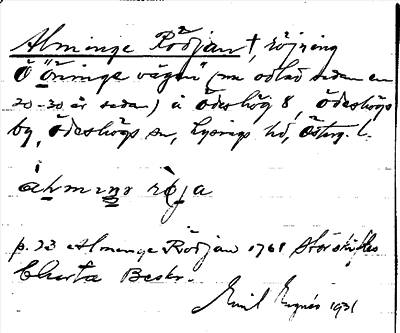 Alminge Rödjan †, röjning
Ö "Öninge vägen" (nu odlad sedan en
20-30 år sedan) å Ödeshög 8, Ödeshögs
by, Ödeshögs sn, Lysings hd, Östg. l.
åhmıng rø̀ja
p. 23 Alminge Rödjan 1761 Storskiftes
Charta Beskr.
Emil 1931